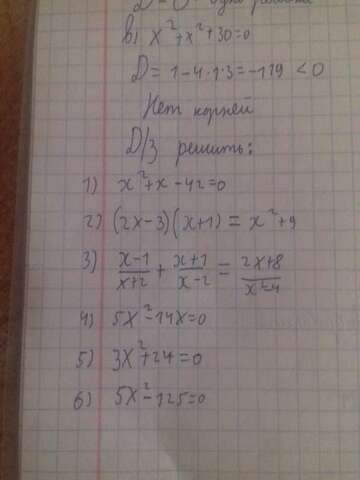 D = 0
в) x²+x²+30=0
D = 1-4·1·3=-119 <0
Нет корней
D/З решить:
1) x²+x-42=0
2) (2x-3)(x+1) = x²+9
3) \frac{x-1}{x+2} + \frac{x+1}{x-2} = \frac{2x+8}{x²-4}
4) 5x²-14x=0
5) 3x²+24=0
6) 5x²-125=0